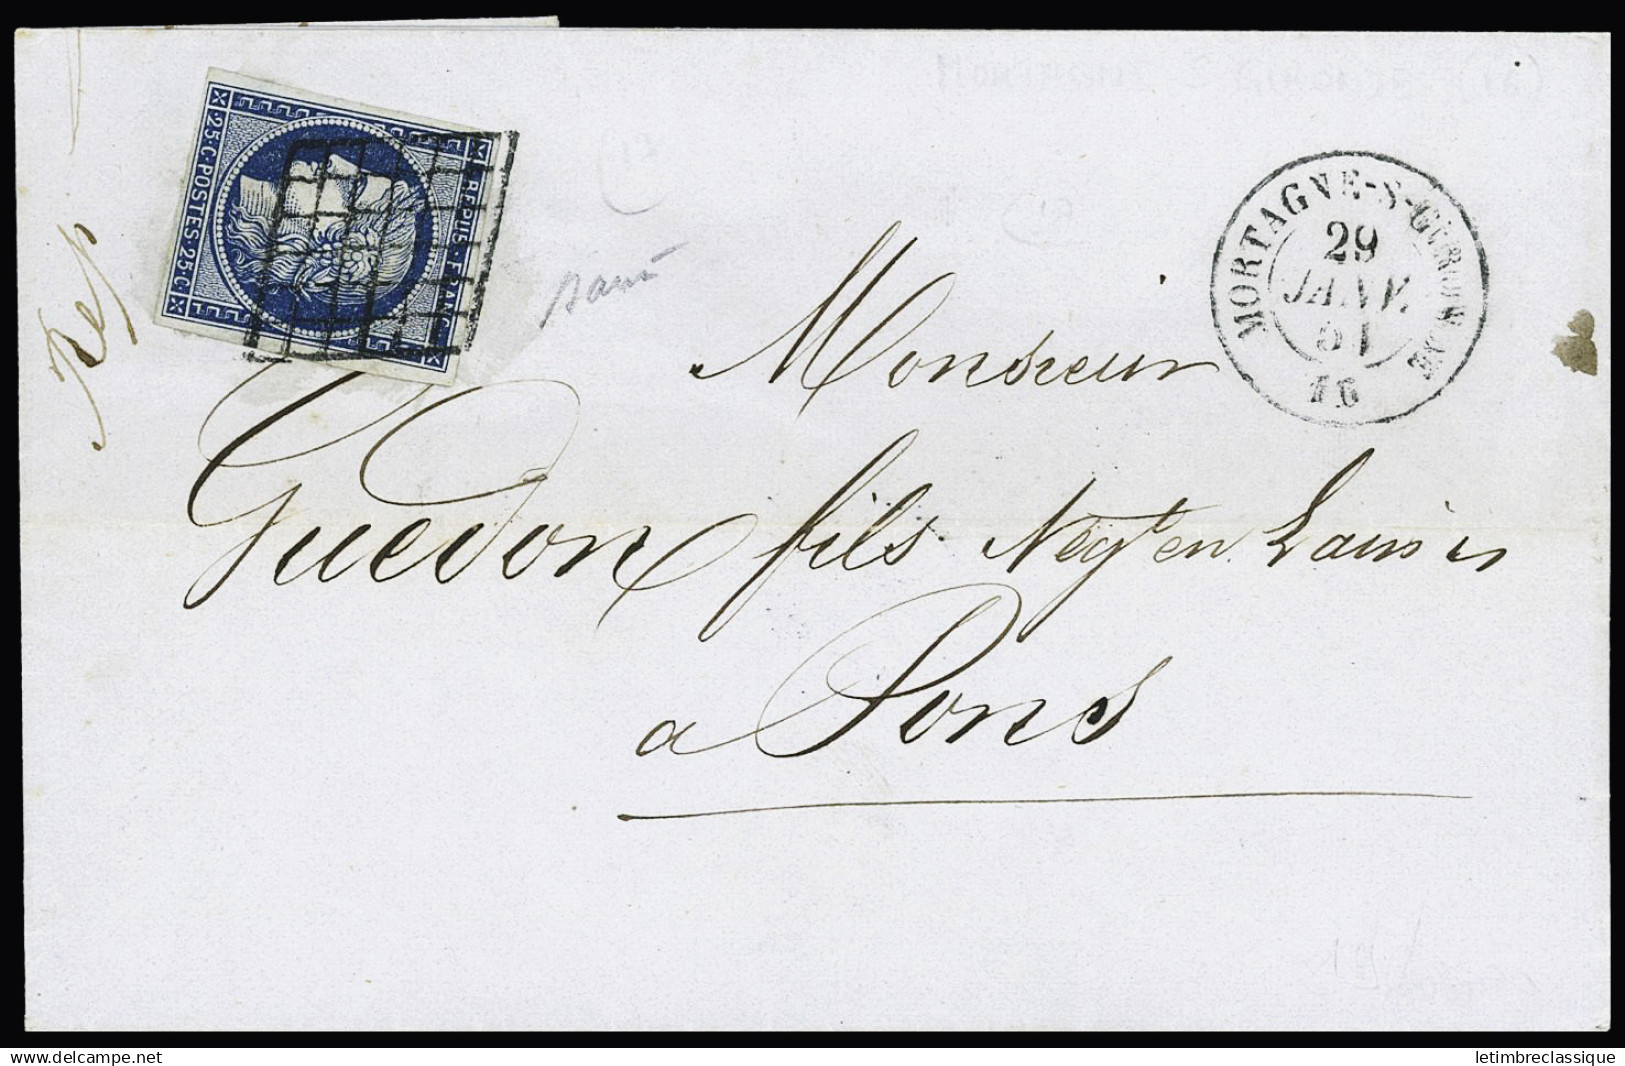 25·C·POSTES·25·C
REPUB·FRANC
Rep
MORTAGNE-S-GIRONDE
29
JANV.
51
16
Monsieur
Guedon fils Negt en Laines
a Pons
www.delcampe.net
letimbreclassique